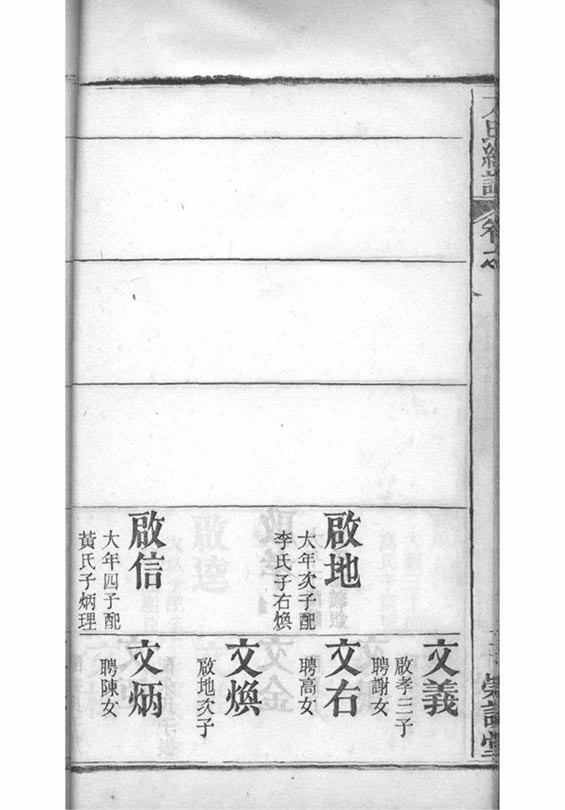 啟地
大年次子配
李氏子右煥
啟信
大年四子配
黃氏子炳理
文義
啟孝三子
聘謝女
文右
聘高女
文煥
啟地次子
文炳
聘陳女